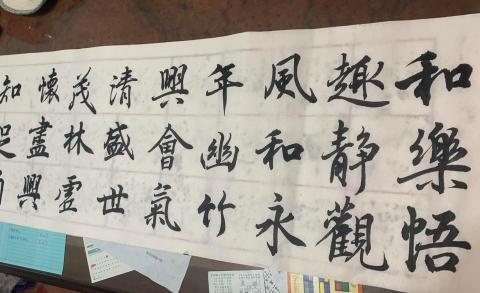 和樂悟
趣靜觀
風和永
年幽竹
興會氣
清盛世
茂林虛
懷盡興
知